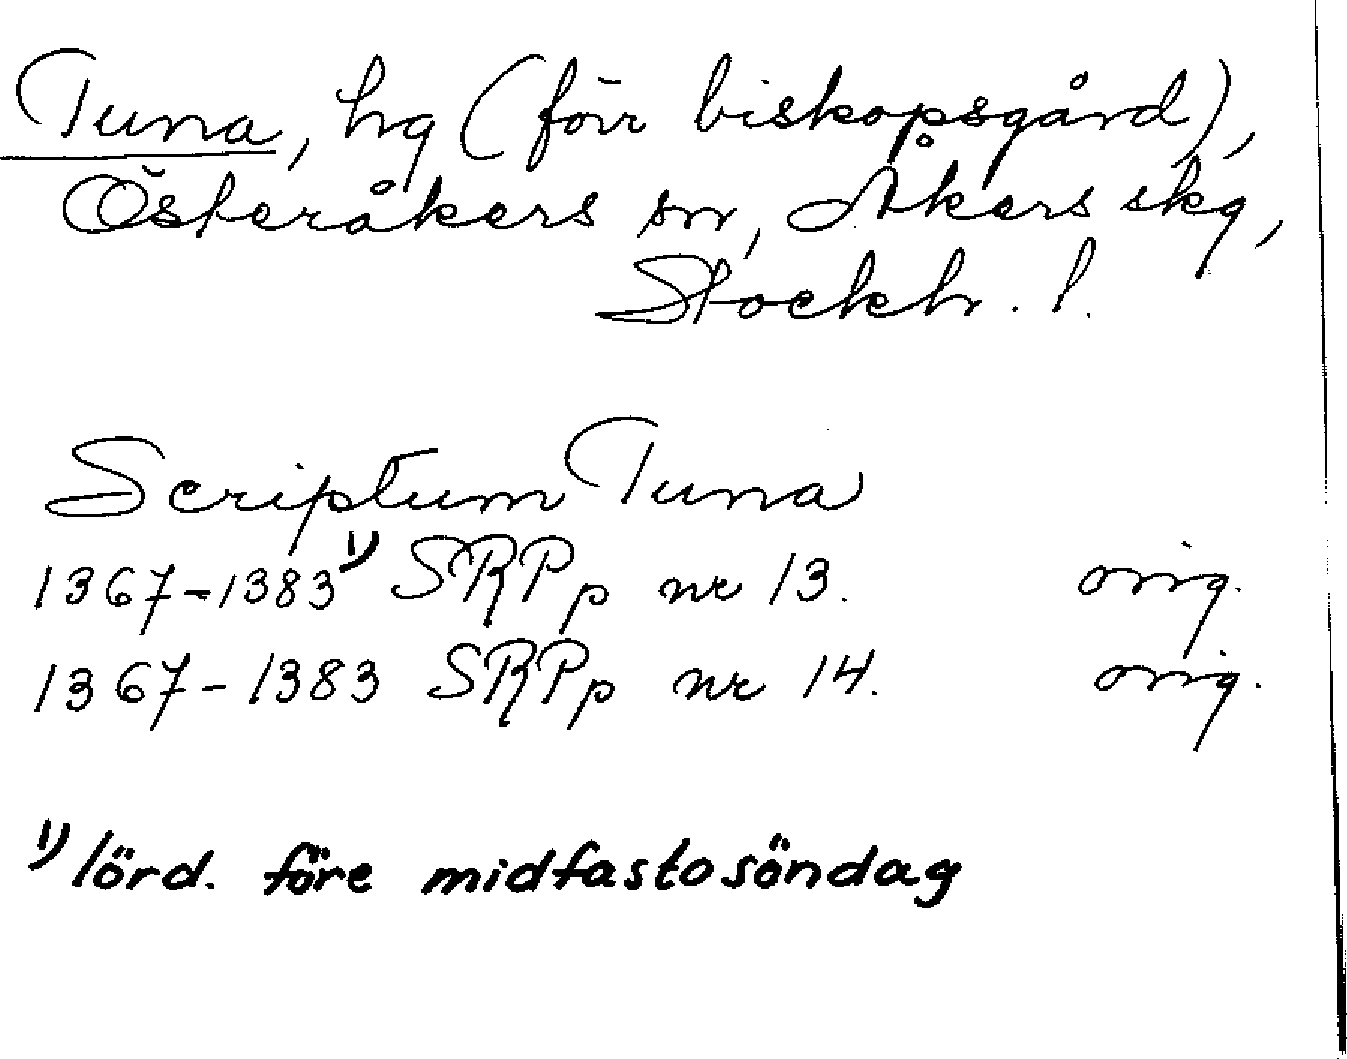 Tuna, hg (förr biskopsgård),
Österåkers sn, Åkers skg,
Stockh. l.
Scriptum Tuna
1367-1383 1) SRPp nr 13. orig.
1367-1383 SRPp nr 14. orig.
1) lörd. före midfastosöndag